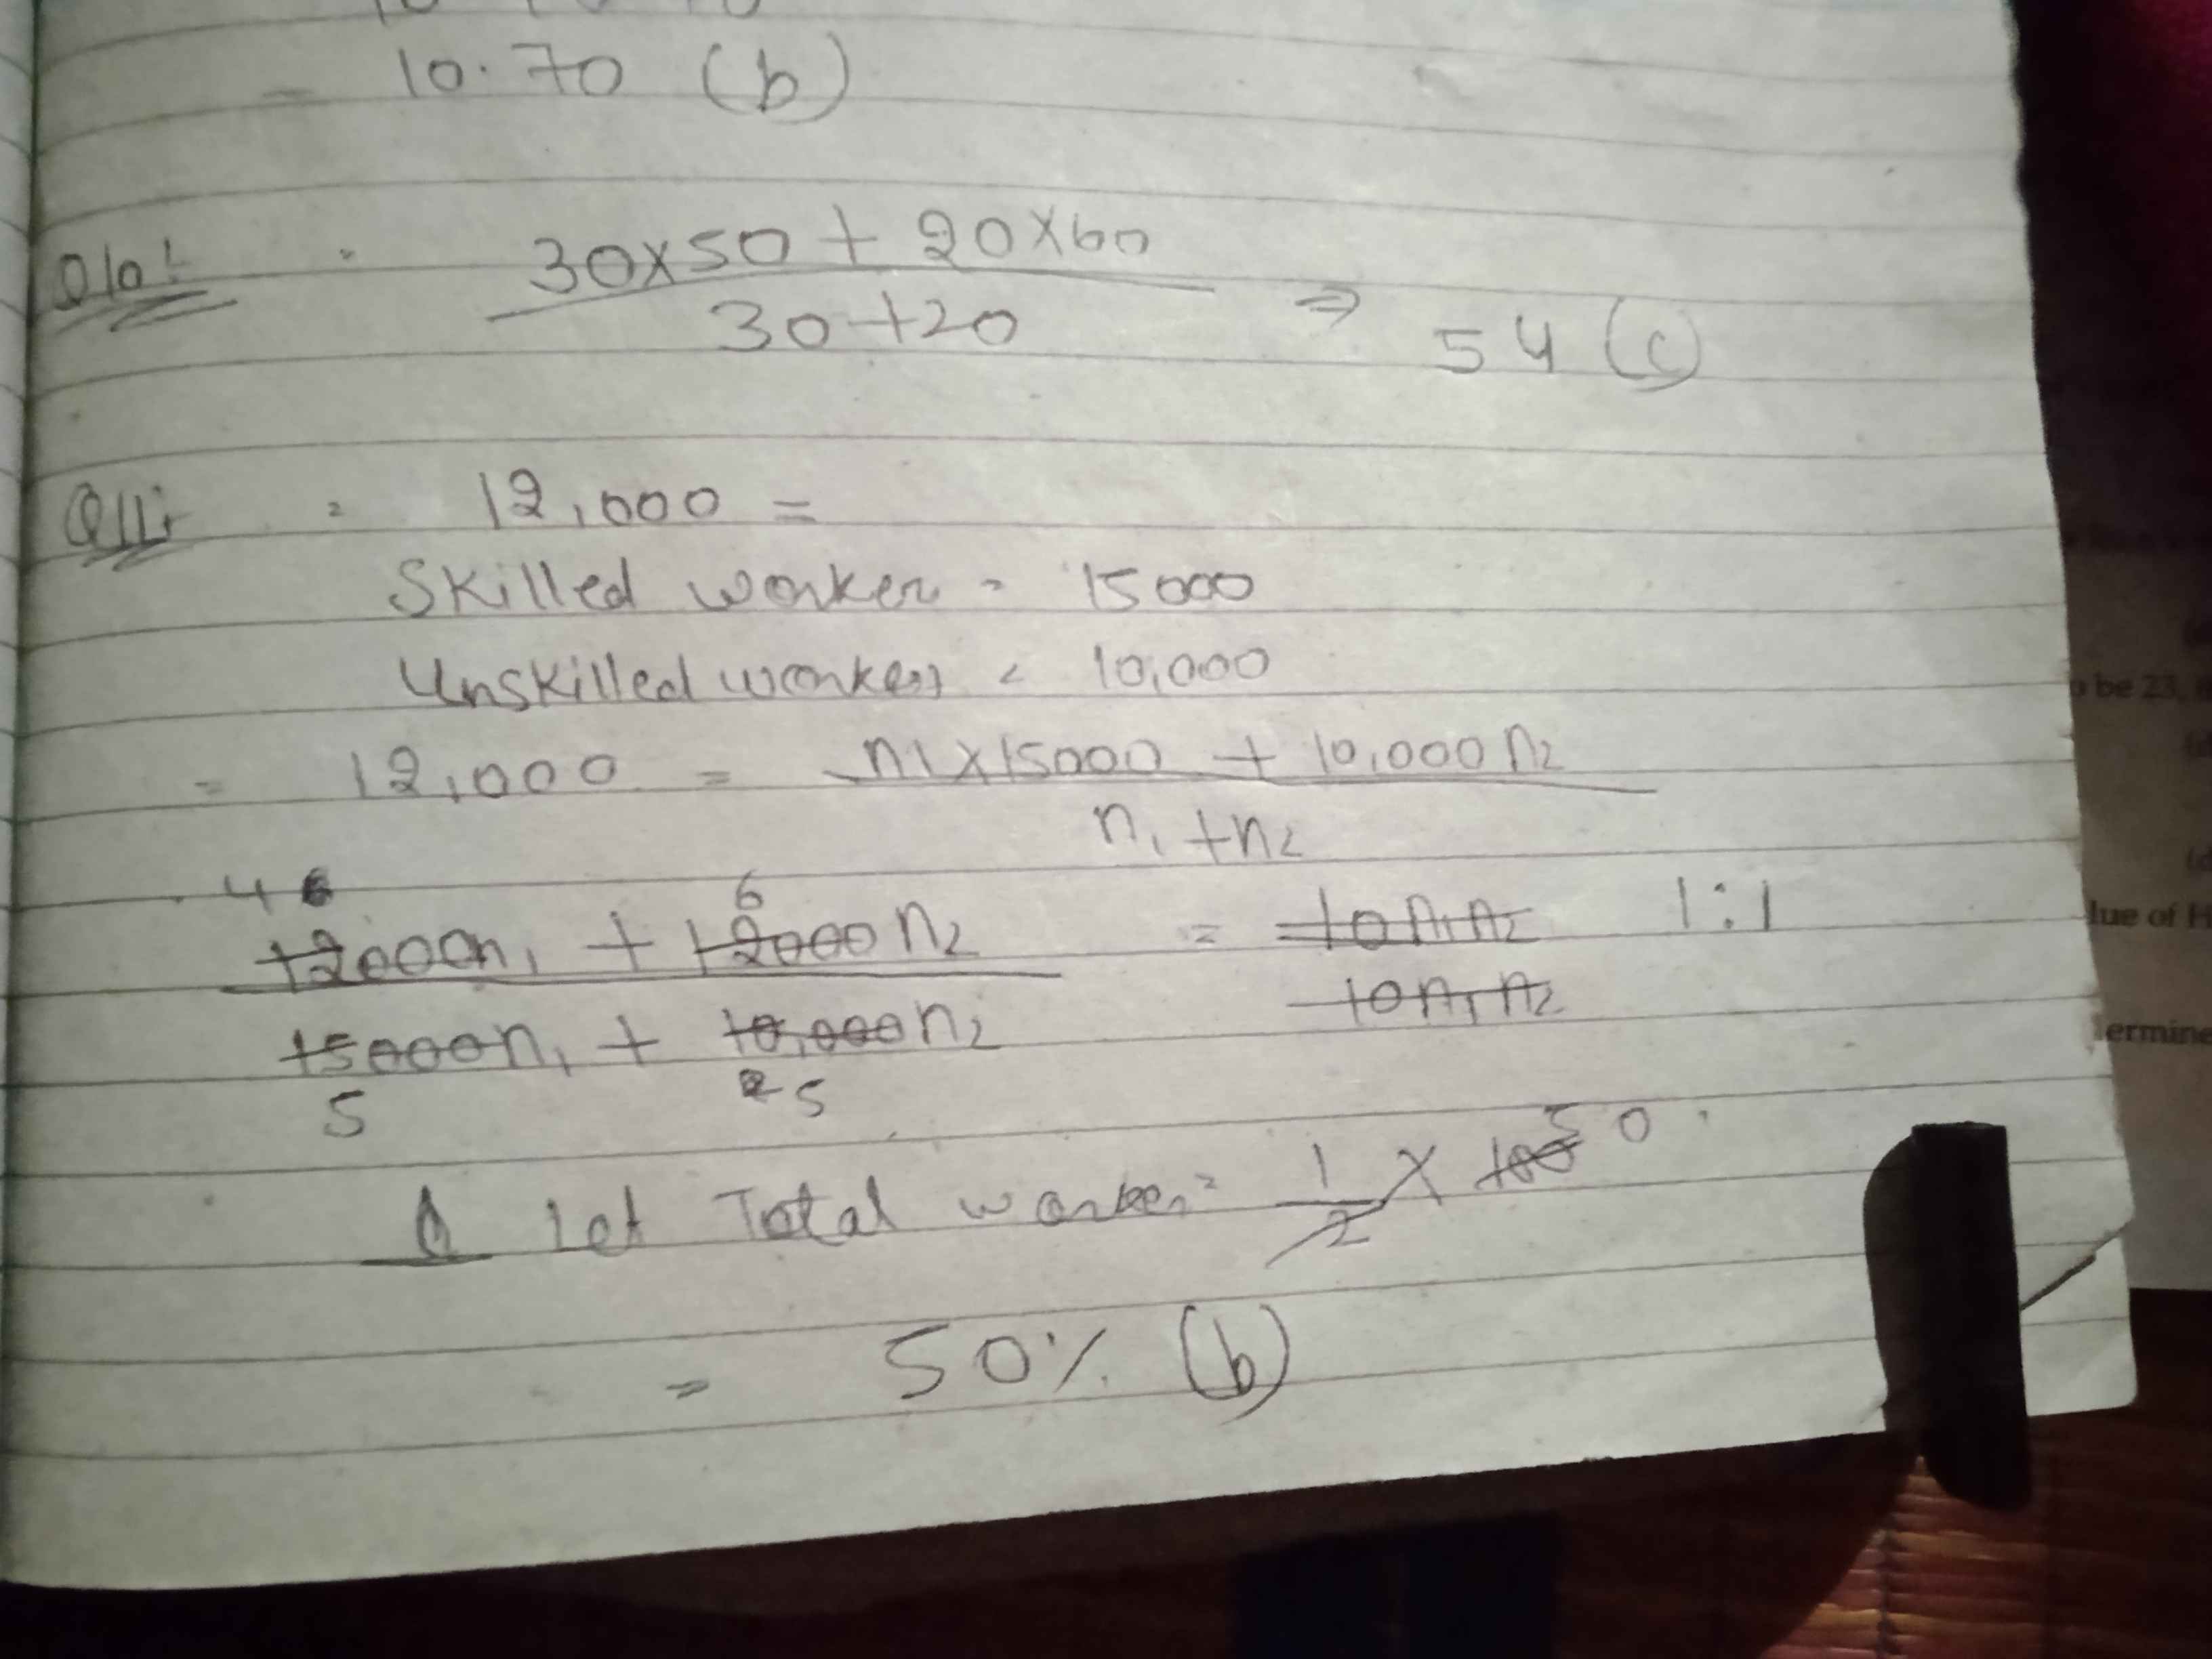 = 10.70 (b)
Q10: 30x50 + 20x60
30+20
⇒ 54 (c)
Q11: = 12,000 =
Skilled worker = 15000
Unskilled workers = 10,000
= 12,000 = n1x15000 + 10,000 n2
n1 + n2
4 6 6
12000n1 + 12000 n2 = 10n1n2 1:1
15000n1 + 10,000n2 10n1n2
5 2 5
Let Total worker = 1/2 x 100 50
= 50% (b)
be 23,
lue of H
ermine